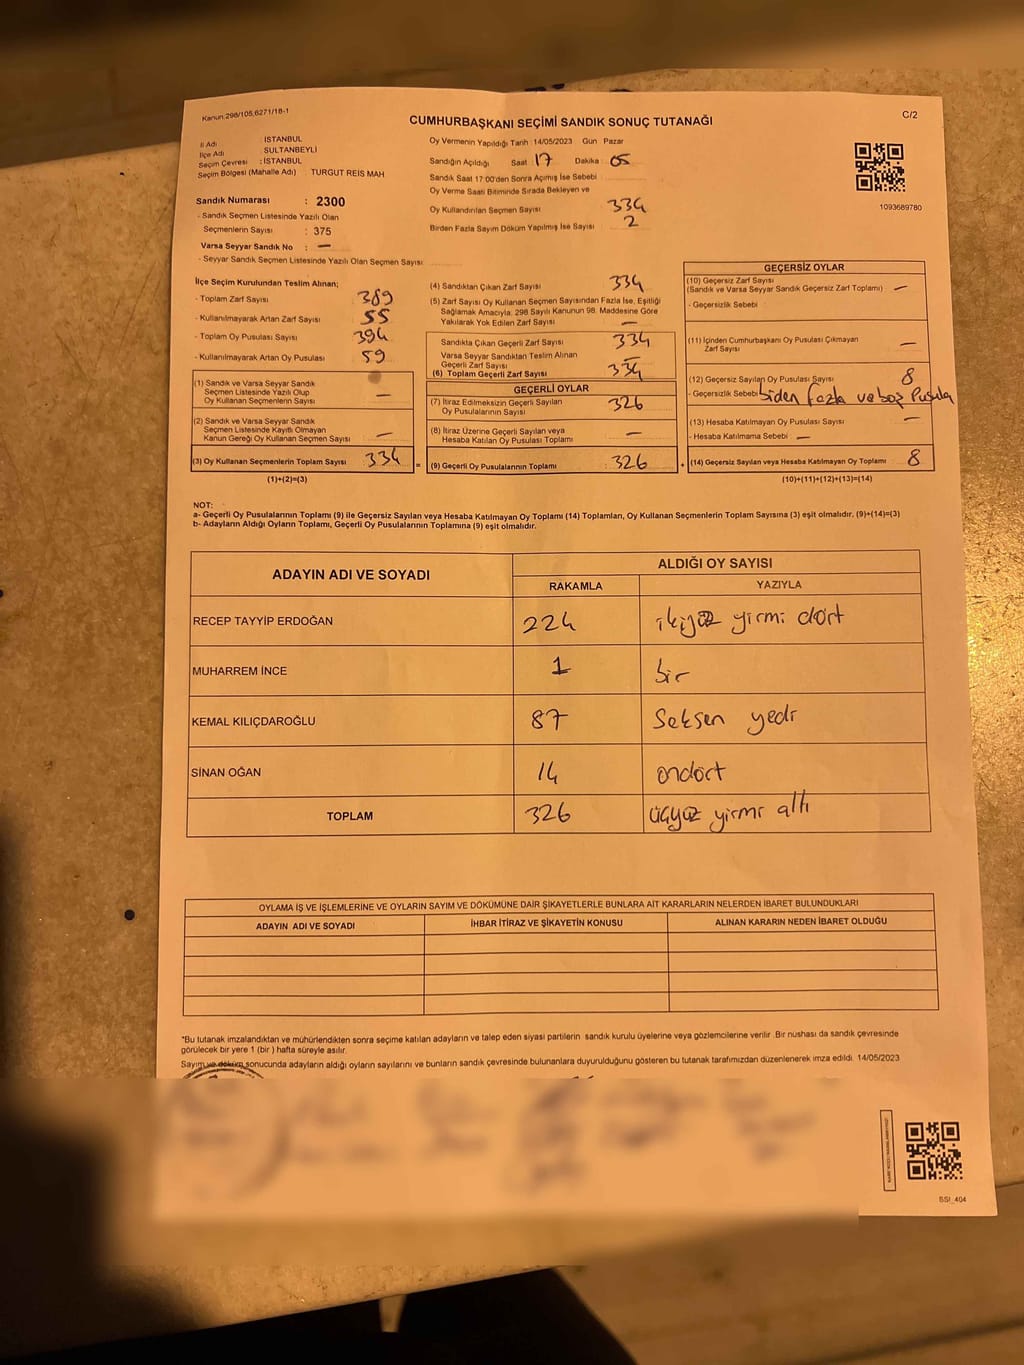 Kanun:298/105,6271/18-1
C/2
CUMHURBAŞKANI SEÇİMİ SANDIK SONUÇ TUTANAĞI
İl Adı : İSTANBUL
İlçe Adı : SULTANBEYLİ
Seçim Çevresi : İSTANBUL
Seçim Bölgesi (Mahalle Adı) TURGUT REIS MAH
Oy Vermenin Yapıldığı Tarih 14/05/2023 Gün Pazar
Sandığın Açıldığı Saat 17 Dakika 05
Sandık Saat 17:00'den Sonra Açımış İse Sebebi
Oy Verme Saati Bitiminde Sırada Bekleyen ve
Oy Kullandırılan Seçmen Sayısı 334
Birden Fazla Sayım Döküm Yapılmış İse Sayısı 2
1093689780
Sandık Numarası : 2300
- Sandık Seçmen Listesinde Yazılı Olan
Seçmenlerin Sayısı : 375
Varsa Seyyar Sandık No : —
- Seyyar Sandık Seçmen Listesinde Yazılı Olan Seçmen Sayısı:
İlçe Seçim Kurulundan Teslim Alınan;
- Toplam Zarf Sayısı 389
- Kullanılmayarak Artan Zarf Sayısı 55
- Toplam Oy Pusulası Sayısı 394
- Kullanılmayarak Artan Oy Pusulası 59
(1) Sandık ve Varsa Seyyar Sandık
Seçmen Listesinde Yazılı Olup
Oy Kullanan Seçmenlerin Sayısı —
(2) Sandık ve Varsa Seyyar Sandık
Seçmen Listesinde Kayıtlı Olmayan
Kanun Gereği Oy Kullanan Seçmen Sayısı —
(3) Oy Kullanan Seçmenlerin Toplam Sayısı 334 =
(1)+(2)=(3)
(4) Sandıktan Çıkan Zarf Sayısı 334
(5) Zarf Sayısı Oy Kullanan Seçmen Sayısından Fazla İse, Eşitliği
Sağlamak Amacıyla; 298 Sayılı Kanunun 98. Maddesine Göre
Yakılarak Yok Edilen Zarf Sayısı —
Sandıkta Çıkan Geçerli Zarf Sayısı 334
Varsa Seyyar Sandıktan Teslim Alınan
Geçerli Zarf Sayısı —
(6) Toplam Geçerli Zarf Sayısı 334
GEÇERLİ OYLAR
(7) İtiraz Edilmeksizin Geçerli Sayılan
Oy Pusulalarının Sayısı 326
(8) İtiraz Üzerine Geçerli Sayılan veya
Hesaba Katılan Oy Pusulası Toplamı —
(9) Geçerli Oy Pusulalarının Toplamı : 326 +
GEÇERSİZ OYLAR
(10) Geçersiz Zarf Sayısı
(Sandık ve Varsa Seyyar Sandık Geçersiz Zarf Toplamı) —
- Geçersizlik Sebebi :
(11) İçinden Cumhurbaşkanı Oy Pusulası Çıkmayan
Zarf Sayısı —
(12) Geçersiz Sayılan Oy Pusulası Sayısı 8
- Geçersizlik Sebebi biden fazla ve boş Pusula
(13) Hesaba Katılmayan Oy Pusulası Sayısı —
- Hesaba Katılmama Sebebi : —
(14) Geçersiz Sayılan veya Hesaba Katılmayan Oy Toplamı : 8
(10)+(11)+(12)+(13)=(14)
NOT:
a- Geçerli Oy Pusulalarının Toplamı (9) ile Geçersiz Sayılan veya Hesaba Katılmayan Oy Toplamı (14) Toplamları, Oy Kullanan Seçmenlerin Toplam Sayısına (3) eşit olmalıdır. (9)+(14)=(3)
b- Adayların Aldığı Oyların Toplamı, Geçerli Oy Pusulalarının Toplamına (9) eşit olmalıdır.
ADAYIN ADI VE SOYADI
ALDIĞI OY SAYISI
RAKAMLA YAZIYLA
RECEP TAYYİP ERDOĞAN 224 ikiyüz yirmi dört
MUHARREM İNCE 1 bir
KEMAL KILIÇDAROĞLU 87 Seksen yedi
SİNAN OĞAN 14 ondört
TOPLAM 326 üçyüz yirmi altı
OYLAMA İŞ VE İŞLEMLERİNE VE OYLARIN SAYIM VE DÖKÜMÜNE DAİR ŞİKAYETLERLE BUNLARA AİT KARARLARIN NELERDEN İBARET BULUNDUKLARI
ADAYIN ADI VE SOYADI İHBAR İTİRAZ VE ŞİKAYETİN KONUSU ALINAN KARARIN NEDEN İBARET OLDUĞU
*Bu tutanak imzalandıktan ve mühürlendikten sonra seçime katılan adayların ve talep eden siyasi partilerin sandık kurulu üyelerine veya gözlemcilerine verilir .Bir nushası da sandık çevresinde
görülecek bir yere 1 (bir ) hafta süreyle asılır.
Sayım ve döküm sonucunda adayların aldığı oyların sayılarını ve bunların sandık çevresinde bulunanlara duyurulduğunu gösteren bu tutanak tarafımızdan düzenlenerek imza edildi. 14/05/2023
SSI_404